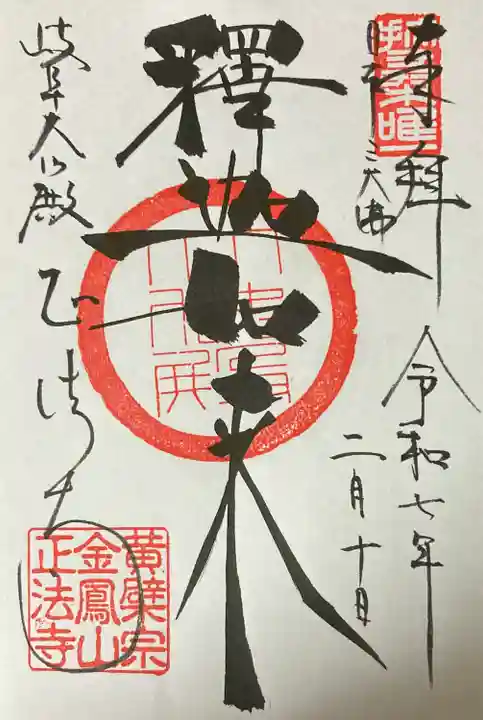 奉拝
日本三大佛
令和七年
二月十日
釋迦如来
岐阜大佛殿
正法寺
黄檗宗
金鳳山
正法寺